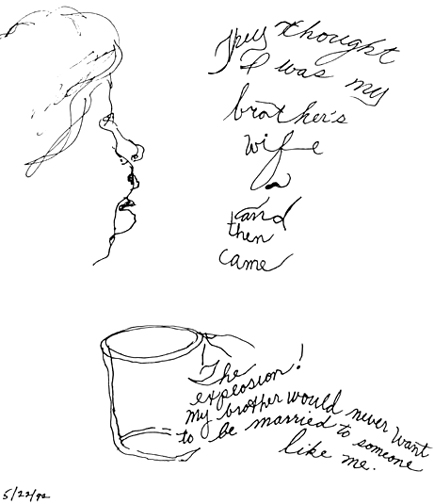 They thought
I was my
brother's
wife
and
then
came
The
explosion!
my brother would never want
to be married to someone
like me.
5/22/92